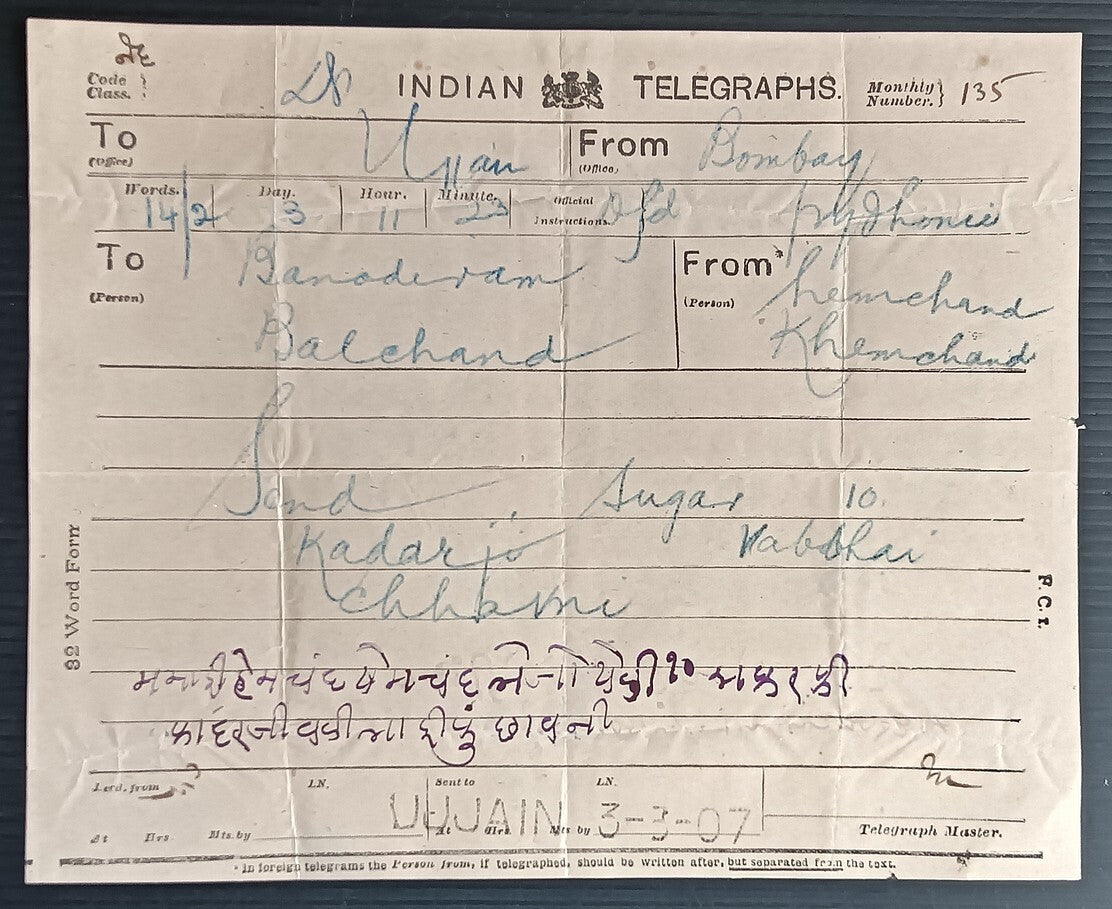 Code } Class.
INDIAN TELEGRAPHS.
Monthly Number. } 135
To (Office) Ujjain From (Office) Bombay
Words. Day. Hour. Minute. Official Instructions.
14/2 3 11 23 Pydhonie
To (Person) Banoderam Balchand
From* (Person) hemchand Khemchand
Send Sugar 10
Kadarji Vabbhai
chhavni
હેમચંદ ખેમચંદ
૧૦
કાદરજી છાવની
32 Word Form
P. C. I.
Lecd. from LN. Sent to LN.
At Hrs Mts. by At Hrs. Mts by
UJJAIN 3-3-07
Telegraph Master.
* In foreign telegrams the Person from, if telegraphed, should be written after, but separated from the text.